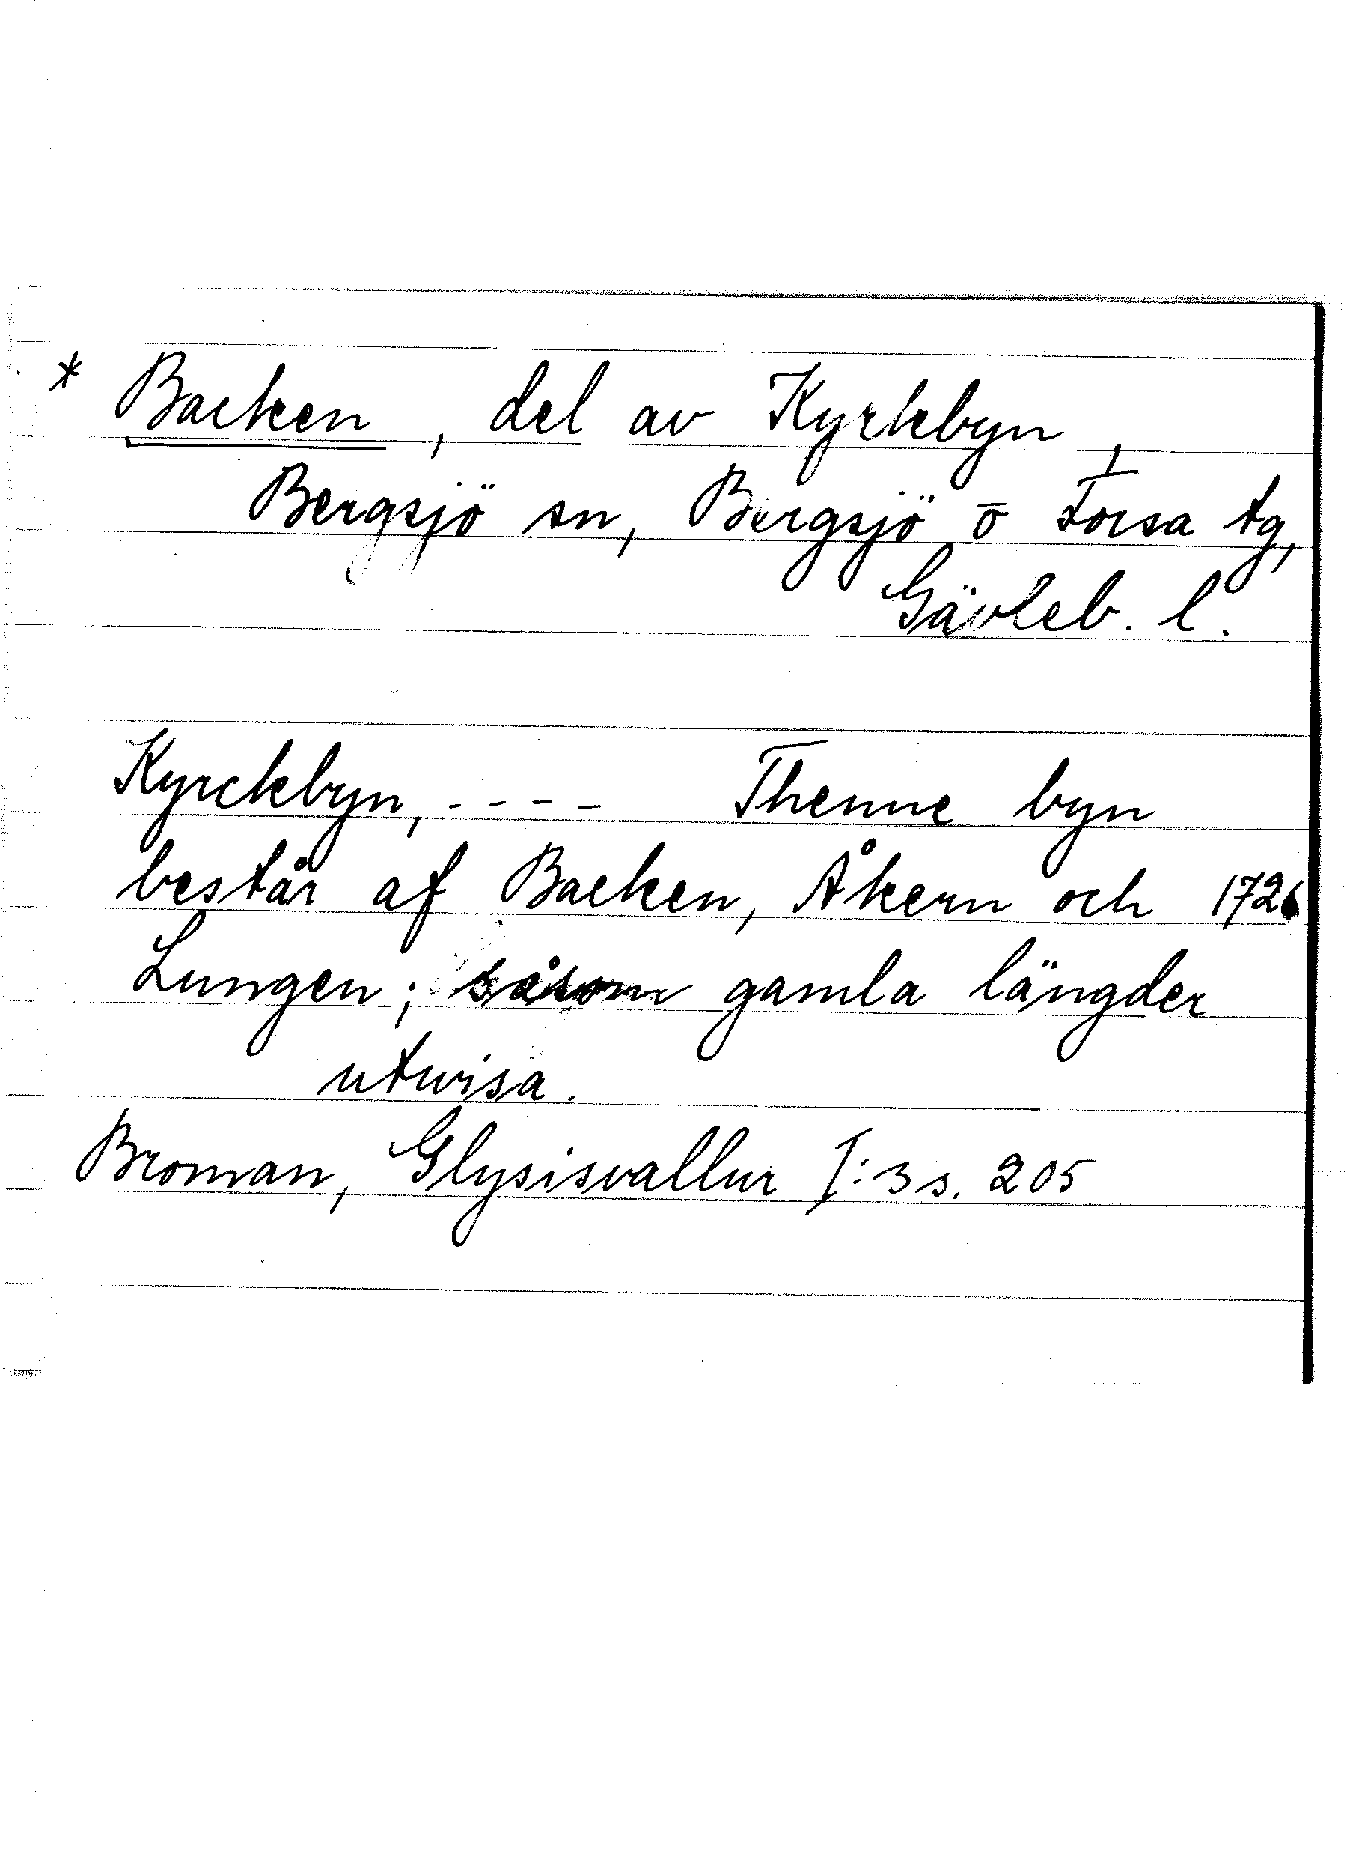 * Backen, del av Kyrkbyn,
Bergsjö sn, Bergsjö o Forsa tg,
Gävleb. l.
Kyrckbyn, - - - - Thenne byn
består af Backen, Åkern och 1726
Lungen; såsom gamla längder
utwisa.
Broman, Glysisvallur I:3 s. 205